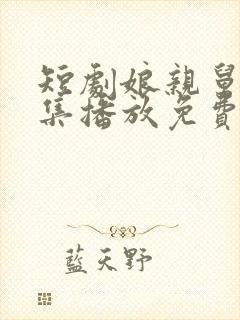 短劇娘親
集播放免費
藍天野